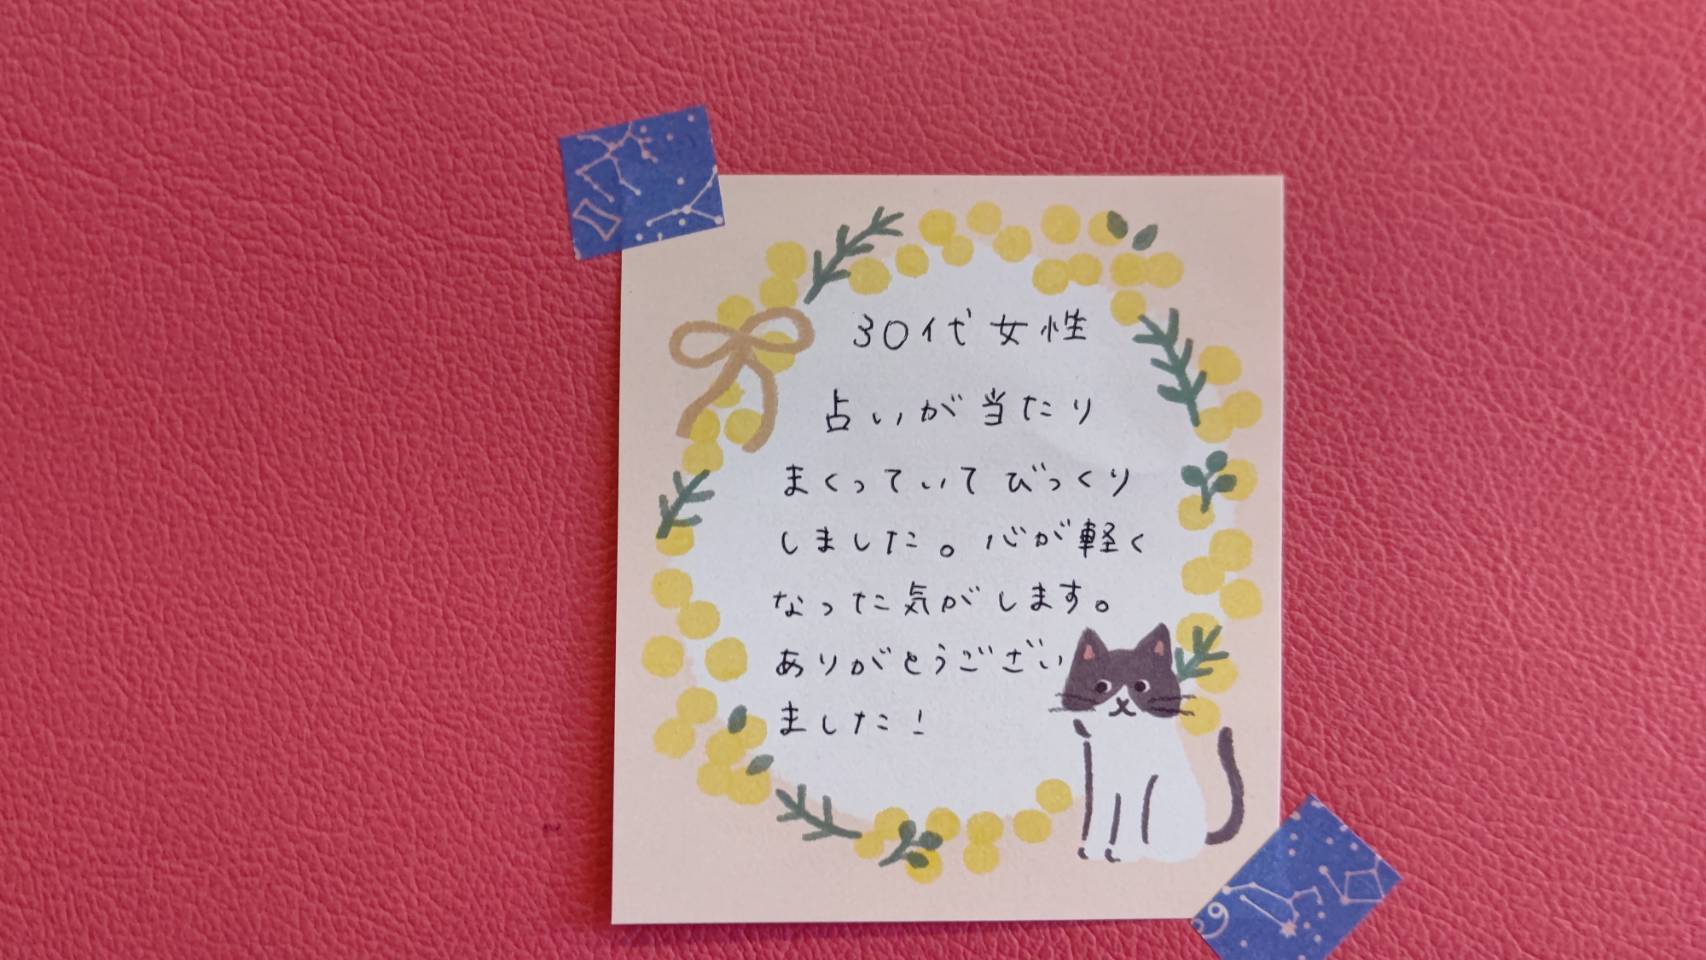 30代女性
占いが当たり
まくっていてびっくり
しました。心が軽く
なった気がします。
ありがとうござい
ました!